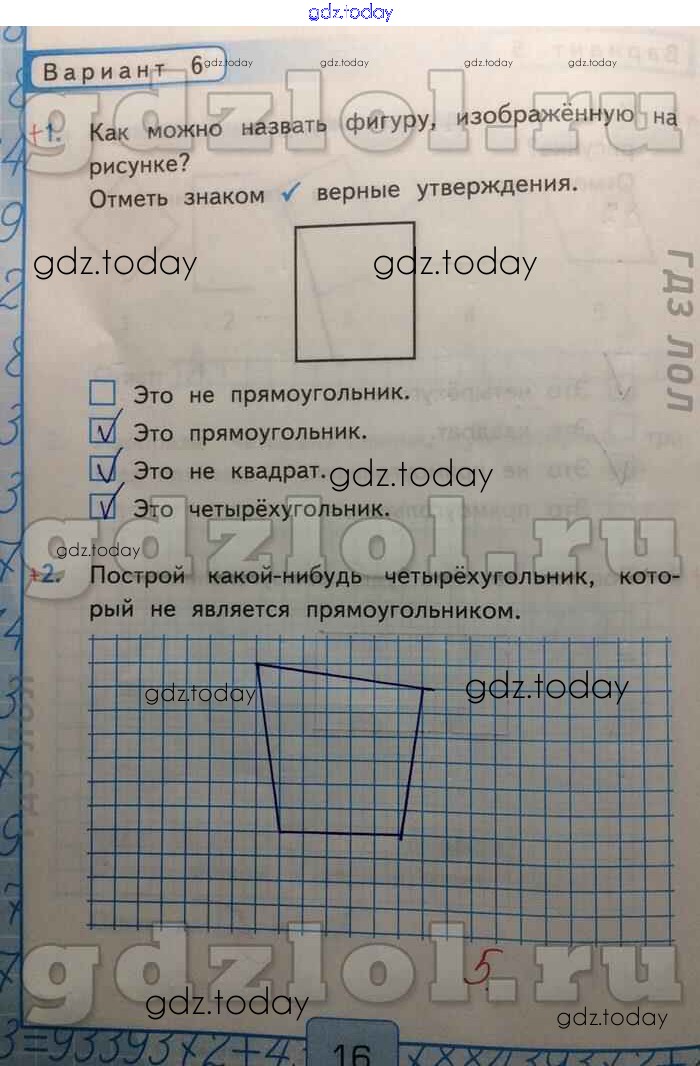 gdz.today
Вариант 6
gdz.today gdz.today gdz.today gdz.today
gdzlol.ru
+1. Как можно назвать фигуру, изображённую на
рисунке?
Отметь знаком ✓ верные утверждения.
gdz.today gdz.today
гдз лол
Это не прямоугольник.
✓ Это прямоугольник.
✓ Это не квадрат.
gdz.today
✓ Это четырёхугольник.
gdzlol.ru
gdz.today
+2. Построй какой-нибудь четырёхугольник, кото-
рый не является прямоугольником.
gdz.today gdz.today
гдз лол
5
gdzlol.ru
gdz.today
gdz.today
16